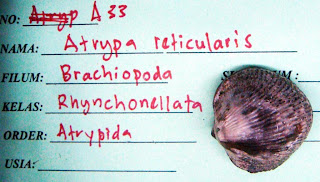 NO: Atryp A 33
NAMA: Atrypa reticularis
FILUM: Brachiopoda
KELAS: Rhynchonellata
ORDER: Atrypida
USIA: